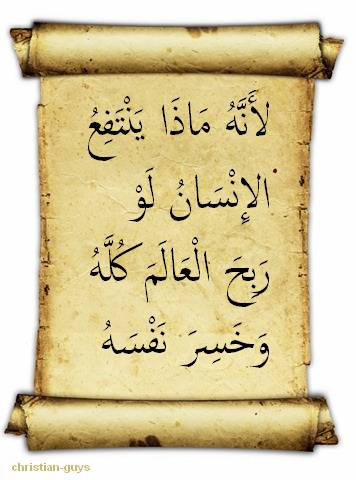 لأَنَّهُ مَاذَا يَنْتَفِعُ
الإِنْسَانُ لَوْ
رَبِحَ الْعَالَمَ كُلَّهُ
وَخَسِرَ نَفْسَهُ
christian-guys